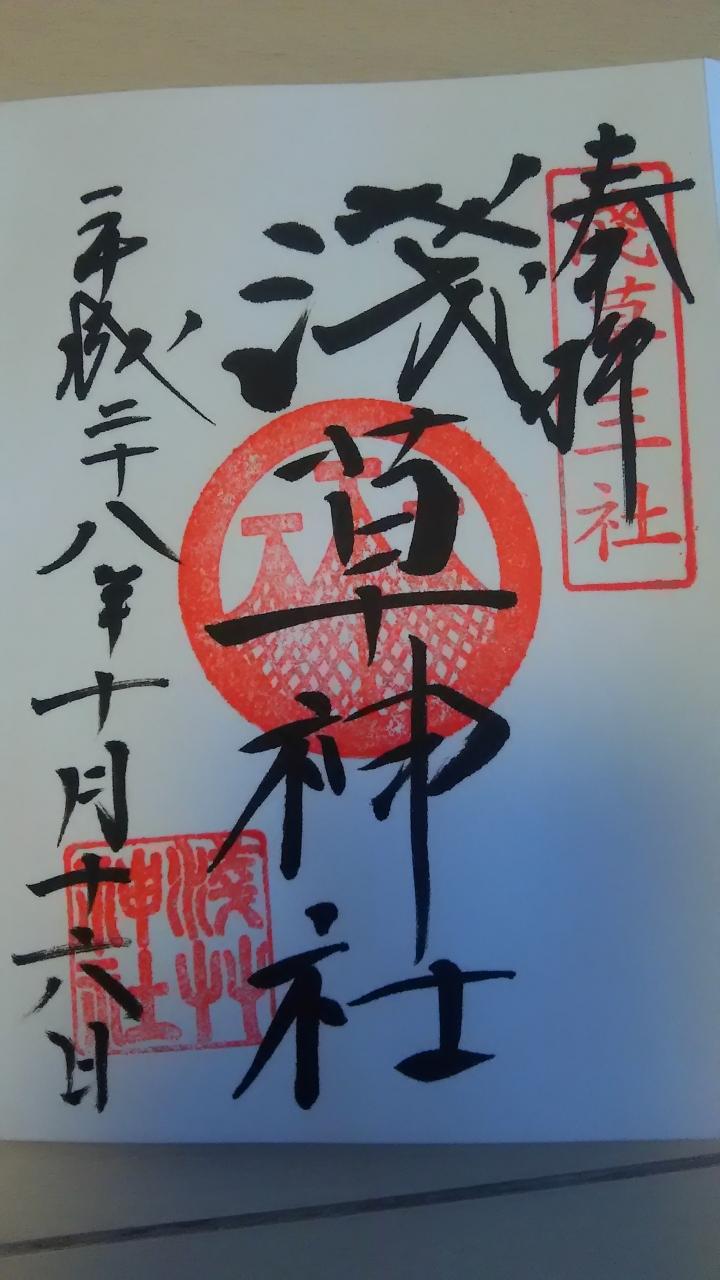 奉拝
淺草三社
淺草神社
淺艸神社
平成二十八年十月十六日